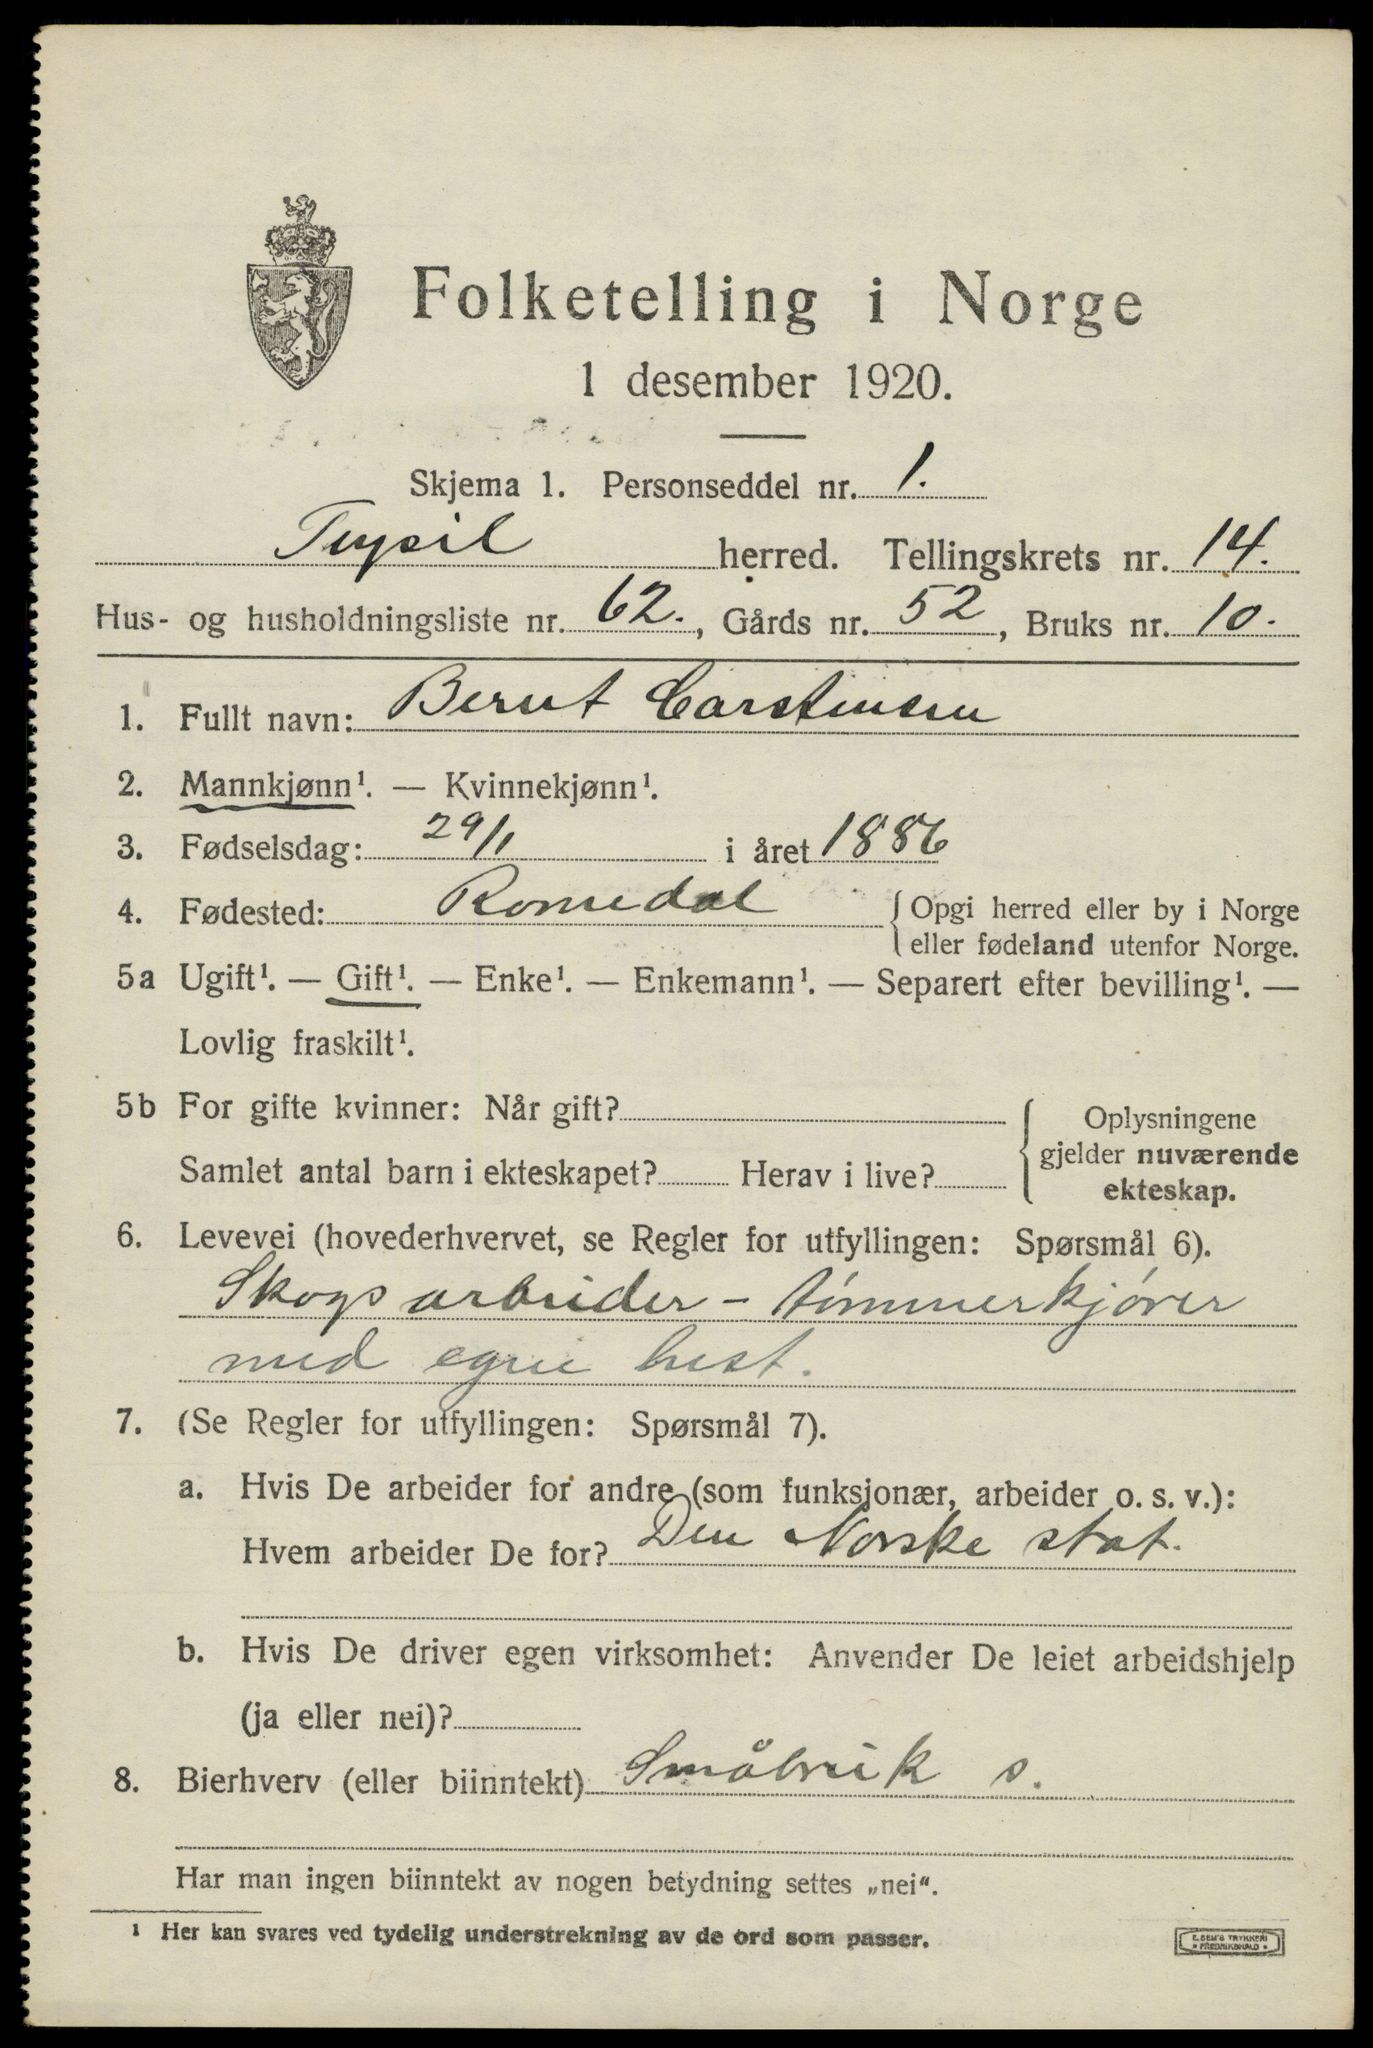 Folketelling i Norge
1 desember 1920.
Skjema 1. Personseddel nr. 1.
Trysil herred. Tellingskrets nr. 14.
Hus- og husholdningsliste nr. 62., Gårds nr. 52, Bruks nr. 10.
1. Fullt navn: Bernt Carstensen
2. Mannkjønn¹. — Kvinnekjønn¹.
3. Fødselsdag: 29/1 i året 1886
4. Fødested: Romedal { Opgi herred eller by i Norge
eller fødeland utenfor Norge.
5a Ugift¹. — Gift¹. — Enke¹. — Enkemann¹. — Separert efter bevilling¹. —
Lovlig fraskilt¹.
5b For gifte kvinner: Når gift? { Oplysningene
gjelder nuværende
Samlet antal barn i ekteskapet? Herav i live?
ekteskap.
6. Levevei (hovederhvervet, se Regler for utfyllingen: Spørsmål 6).
Skogsarbeider - tømmerkjører
med egne hest.
7. (Se Regler for utfyllingen: Spørsmål 7).
a. Hvis De arbeider for andre (som funksjonær, arbeider o. s. v.):
Hvem arbeider De for? Den Norske stat.
b. Hvis De driver egen virksomhet: Anvender De leiet arbeidshjelp
(ja eller nei)?
8. Bierhverv (eller biinntekt) Småbruk s.
Har man ingen biinntekt av nogen betydning settes „nei“.
¹ Her kan svares ved tydelig understrekning av de ord som passer.
E. SEM'S TRYKKERI
* FREDRIKSHALD *